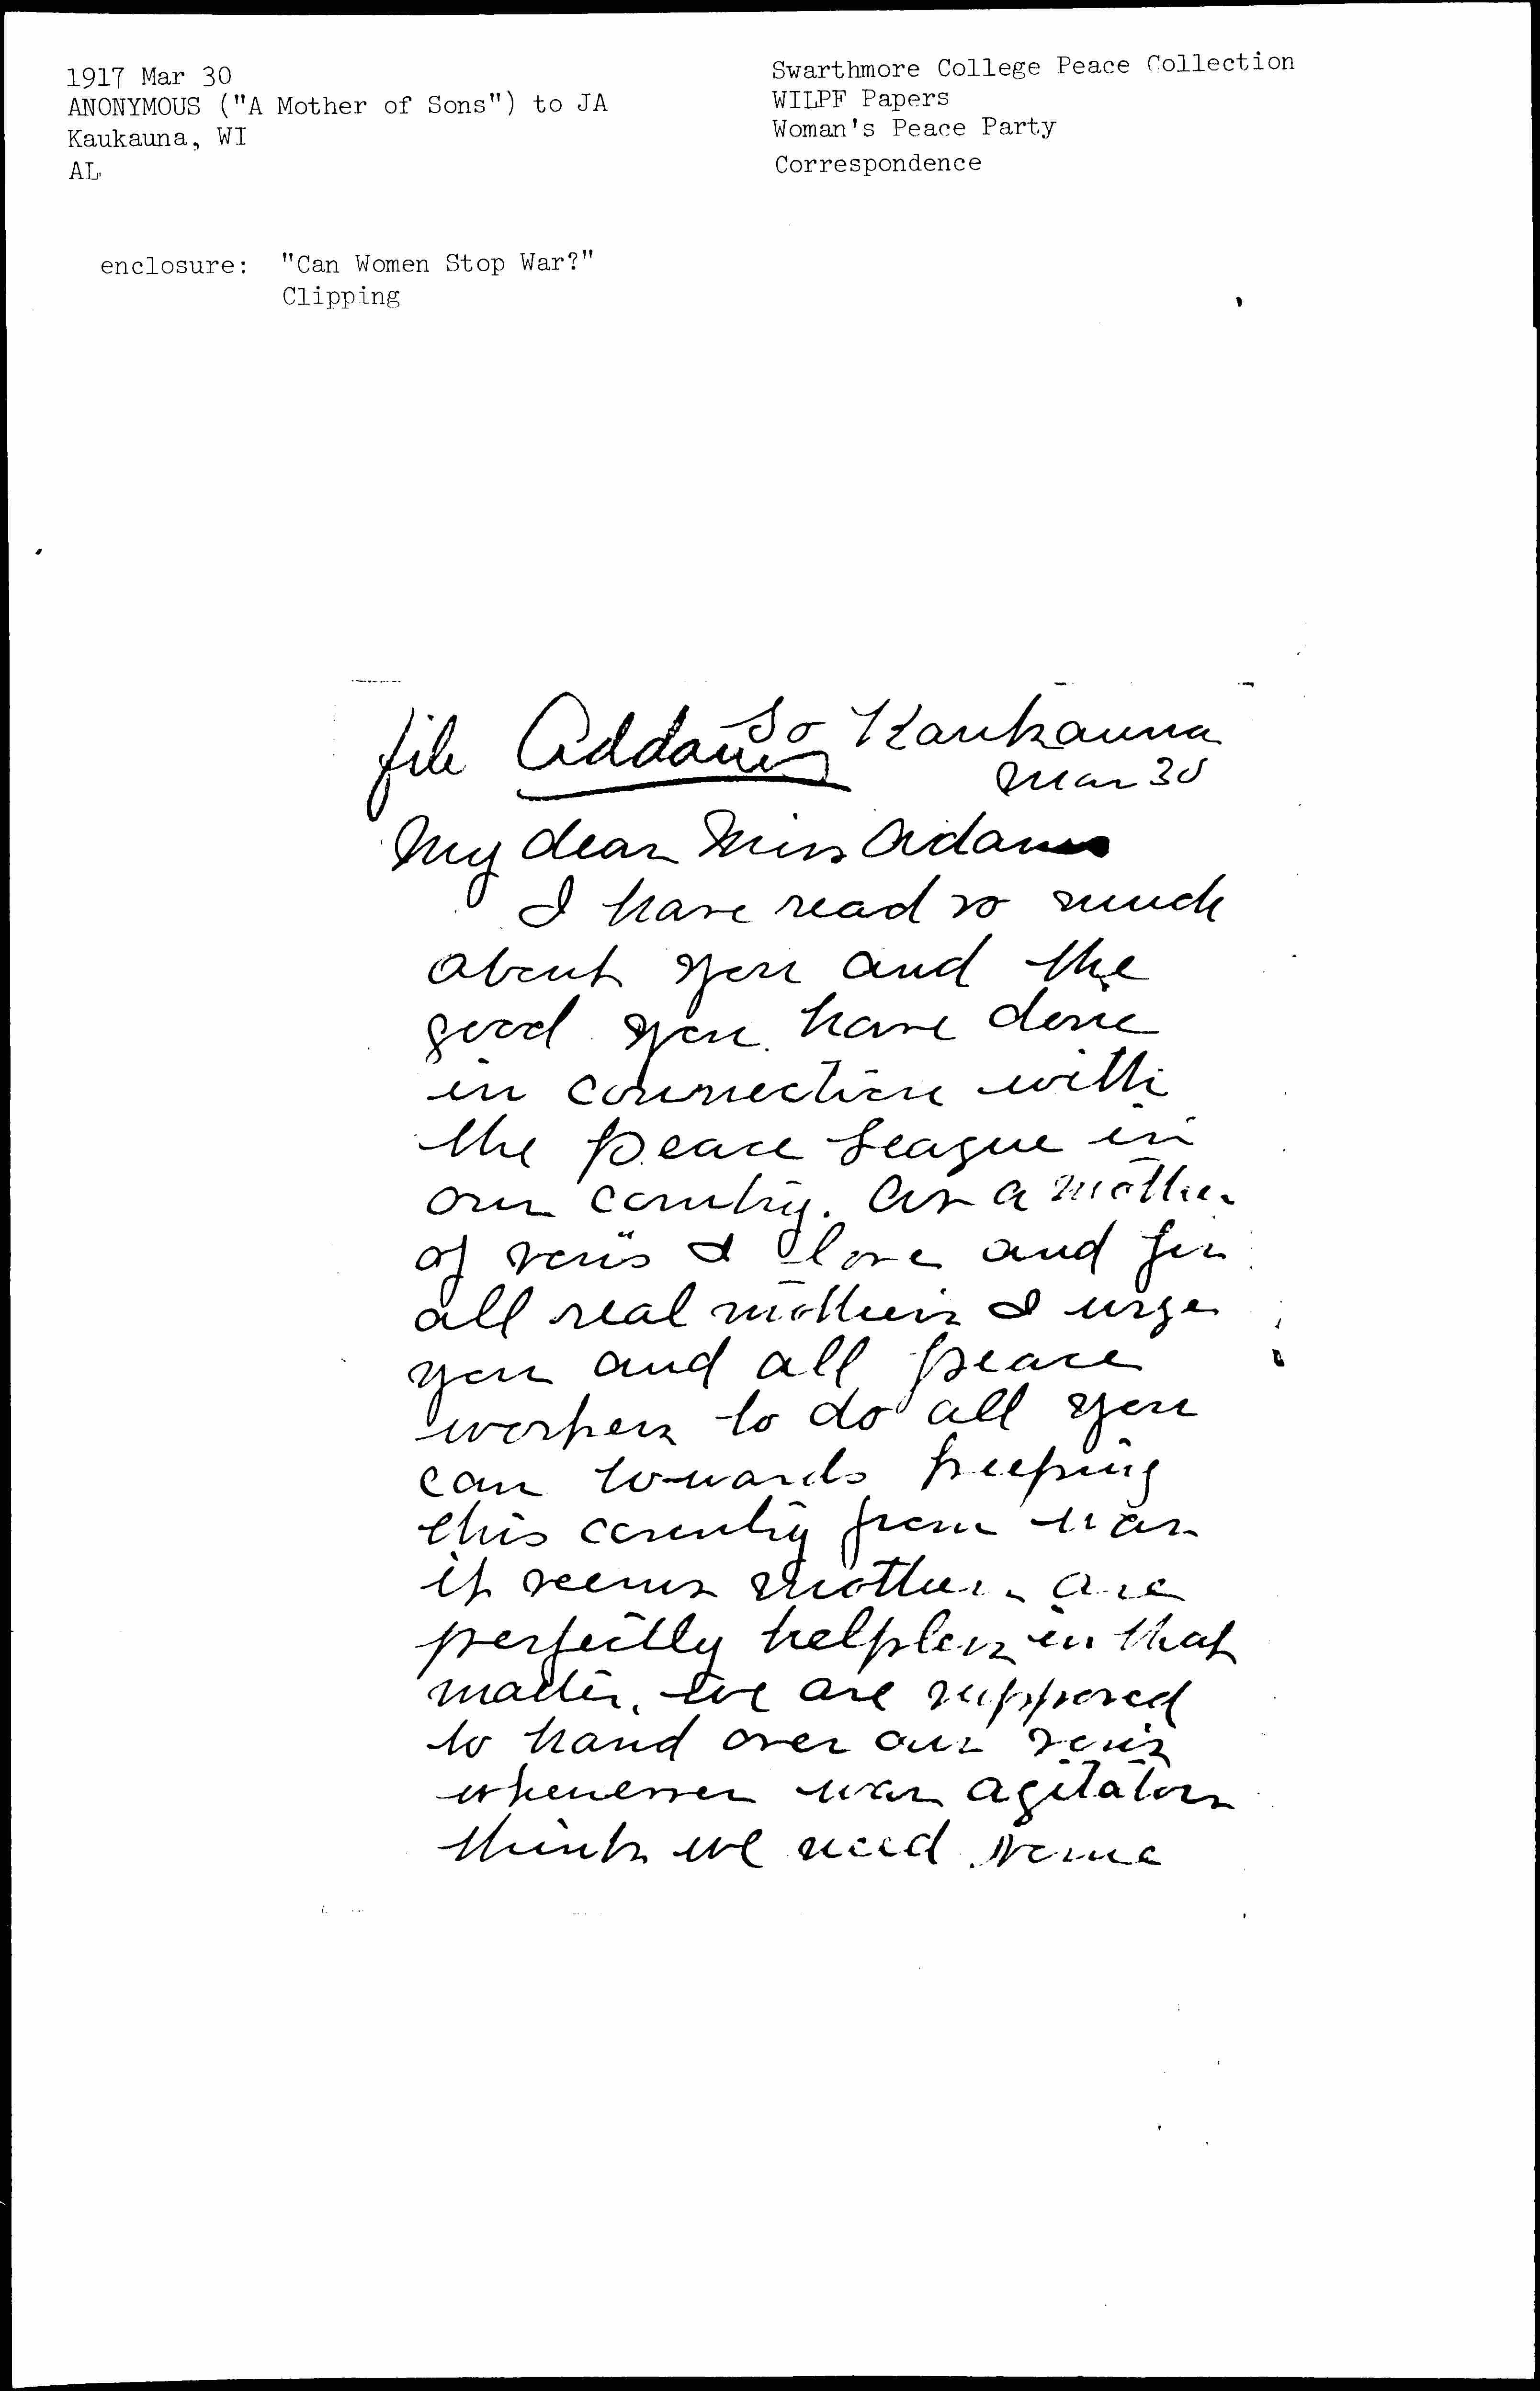 1917 Mar 30
ANONYMOUS ("A Mother of Sons") to JA
Kaukauna, WI
AL
Swarthmore College Peace Collection
WILPF Papers
Woman's Peace Party
Correspondence
enclosure: "Can Women Stop War?"
Clipping
file Addams
So Kaukauna
Mar 30
My dear Miss Adams
I have read so much
about you and the
good you have done
in connection with
the peace league in
our country. As a mother
of sons I love and for
all real mothers I urge
you and all peace
workers to do all you
can towards keeping
this country from war
it seems mothers are
perfectly helpless in that
matter. we are supposed
to hand over our sons
whenever war agitators
think we need some